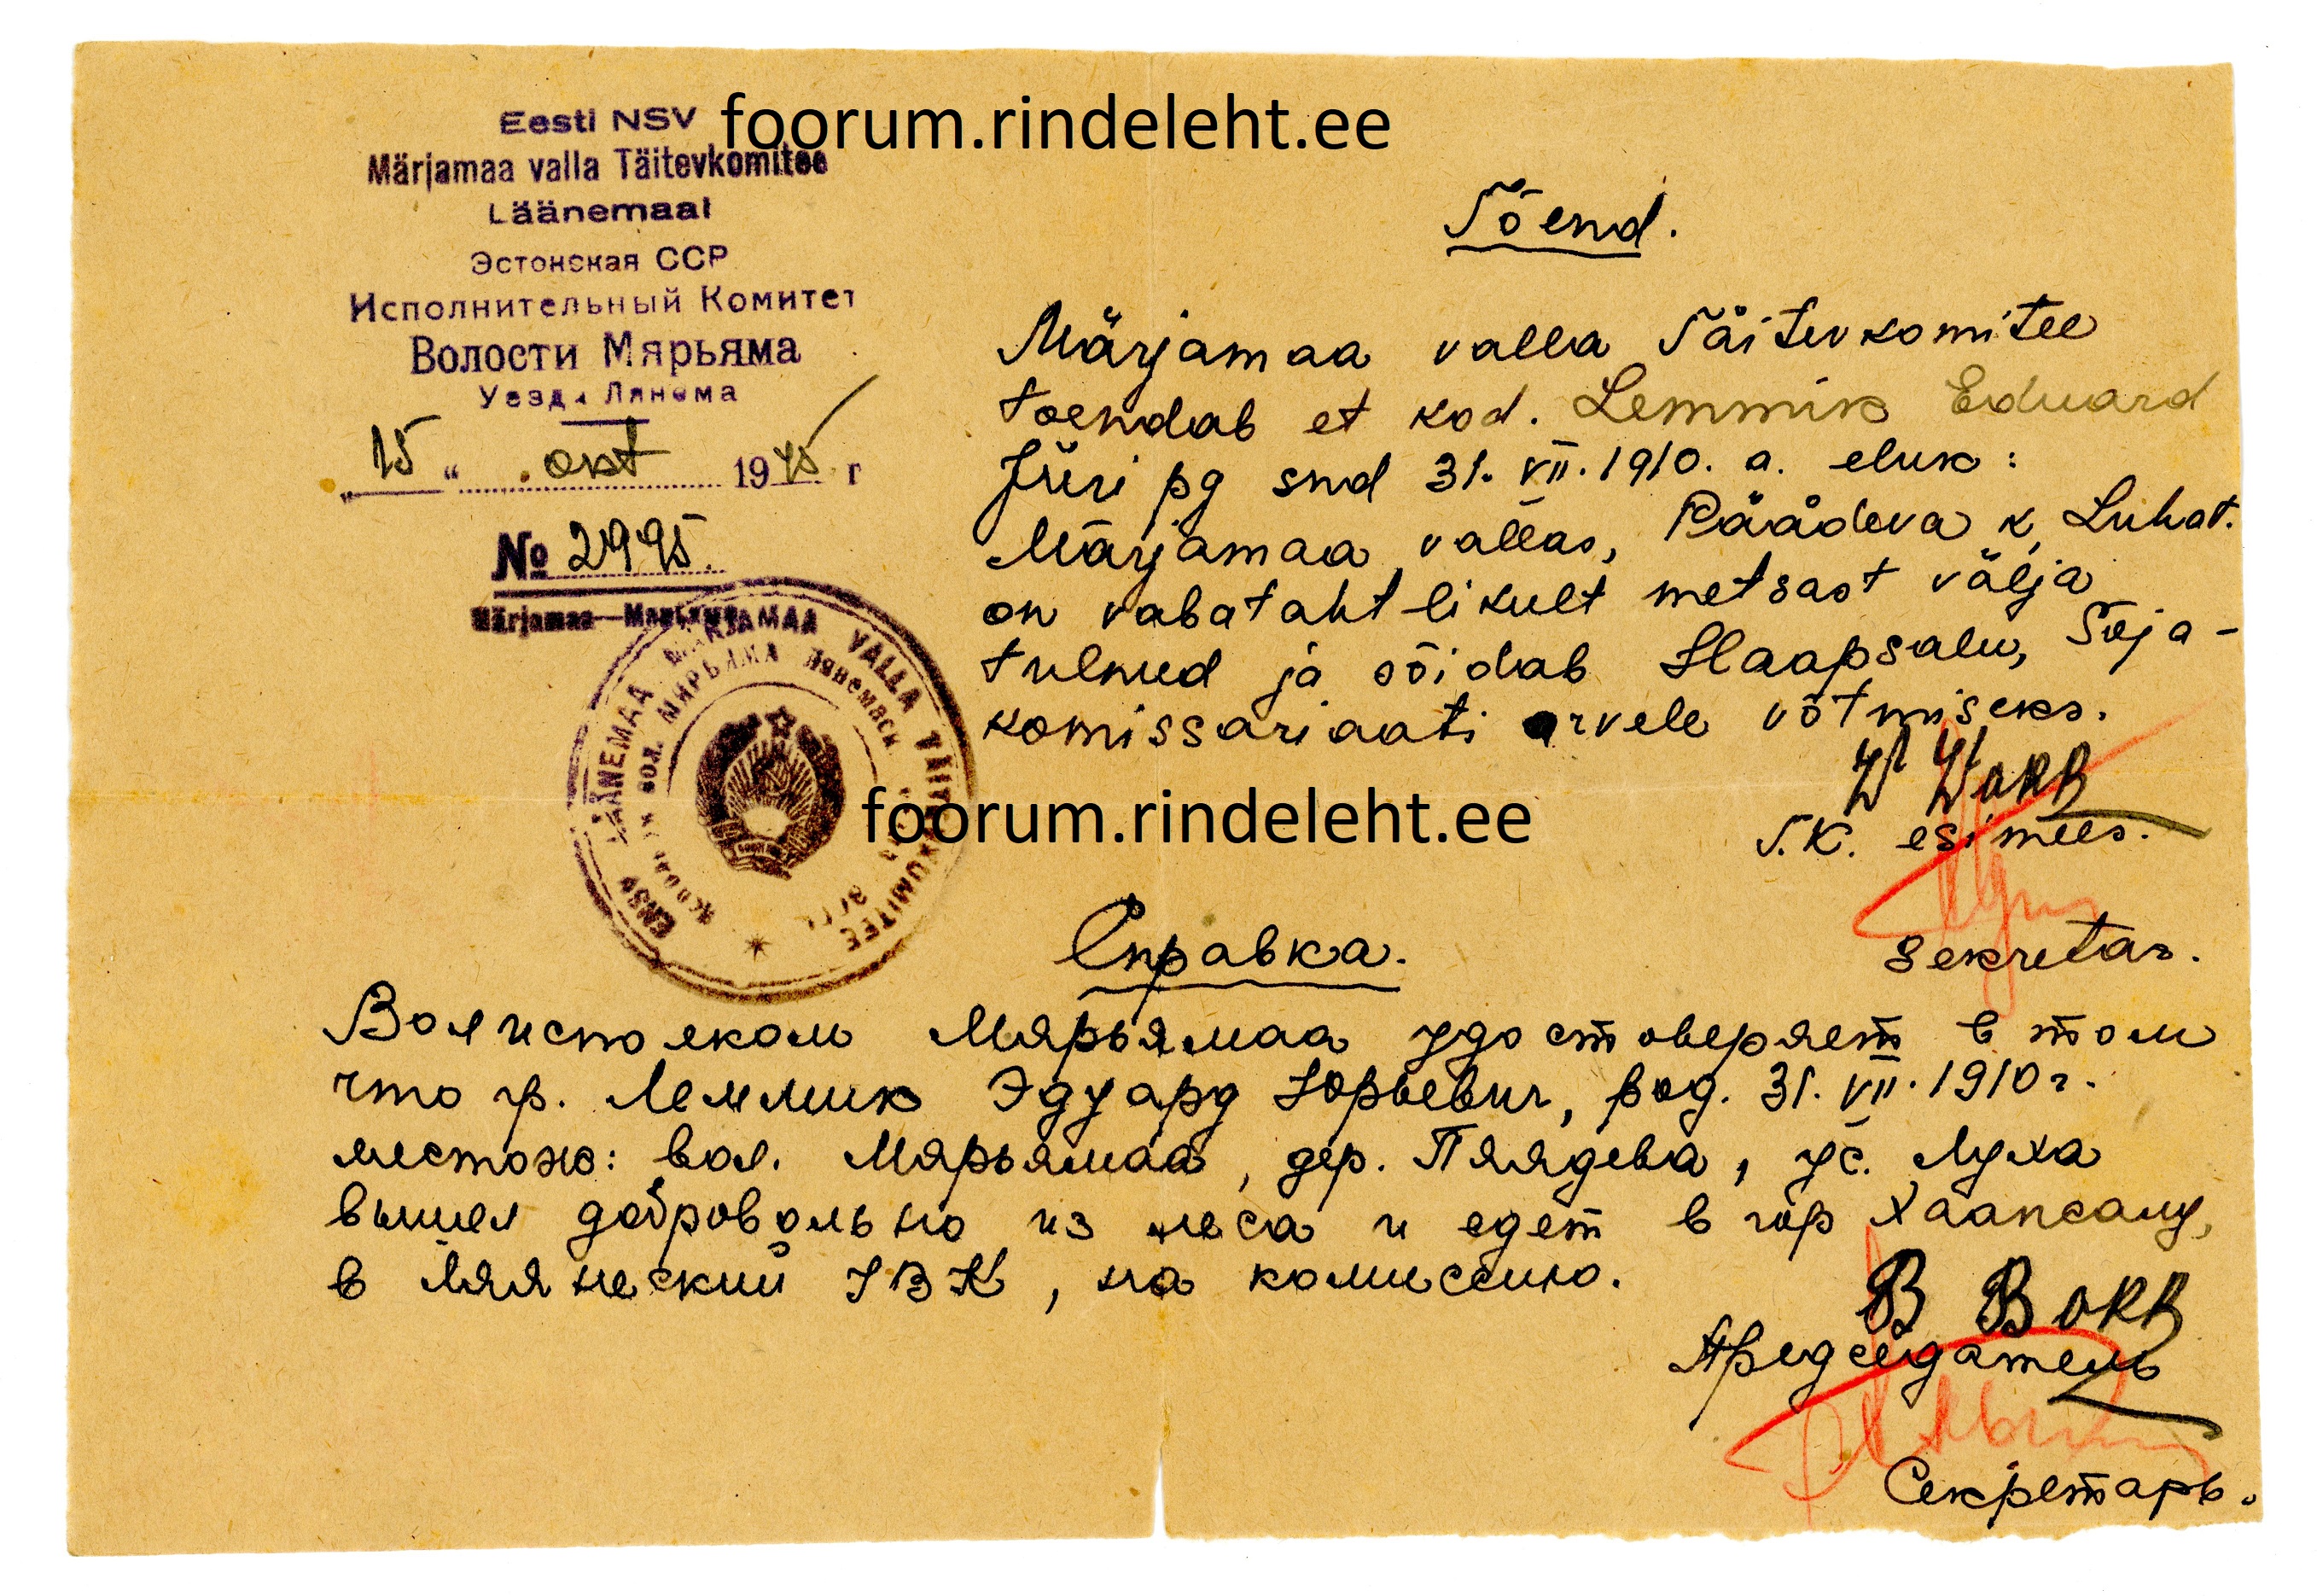 foorum.rindeleht.ee
Eesti NSV
Märjamaa valla Täitevkomitee
Läänemaal
Эстонская ССР
Исполнительный Комитет
Волости Мярьяма
Уезда Лянема
"15" окт 1945 г
№ 2995.
Märjamaa—Мярьяма
ENSV LÄÄNEMAA MÄRJAMAA VALLA TÄITEVKOMITEE
Tõend.
Märjamaa valla Täitevkomitee
toendab et kod. Lemmik Eduard
Jüri pg snd 31. VII. 1910. a. eluk:
Märjamaa vallas, Päädeva k, Luhat.
on vabatahtlikult metsast välja
tulnud ja sõidab Haapsalu, Sõja-
komissariaati arvele võtmiseks.
T.K. esimees.
foorum.rindeleht.ee
sekretär.
Справка.
Волисполком Мярьямаа удостоверяет в том
что гр. Леммик Эдуард Юрьевич, род. 31. VII. 1910 г.
местож: вол. Мярьямаа, дер. Пяядева, ус. Луха
вышел добровольно из леса и едет в гор Хаапсалу,
в Ляянеский УВК, на комиссию.
В Вокк
Председатель
Секретарь.